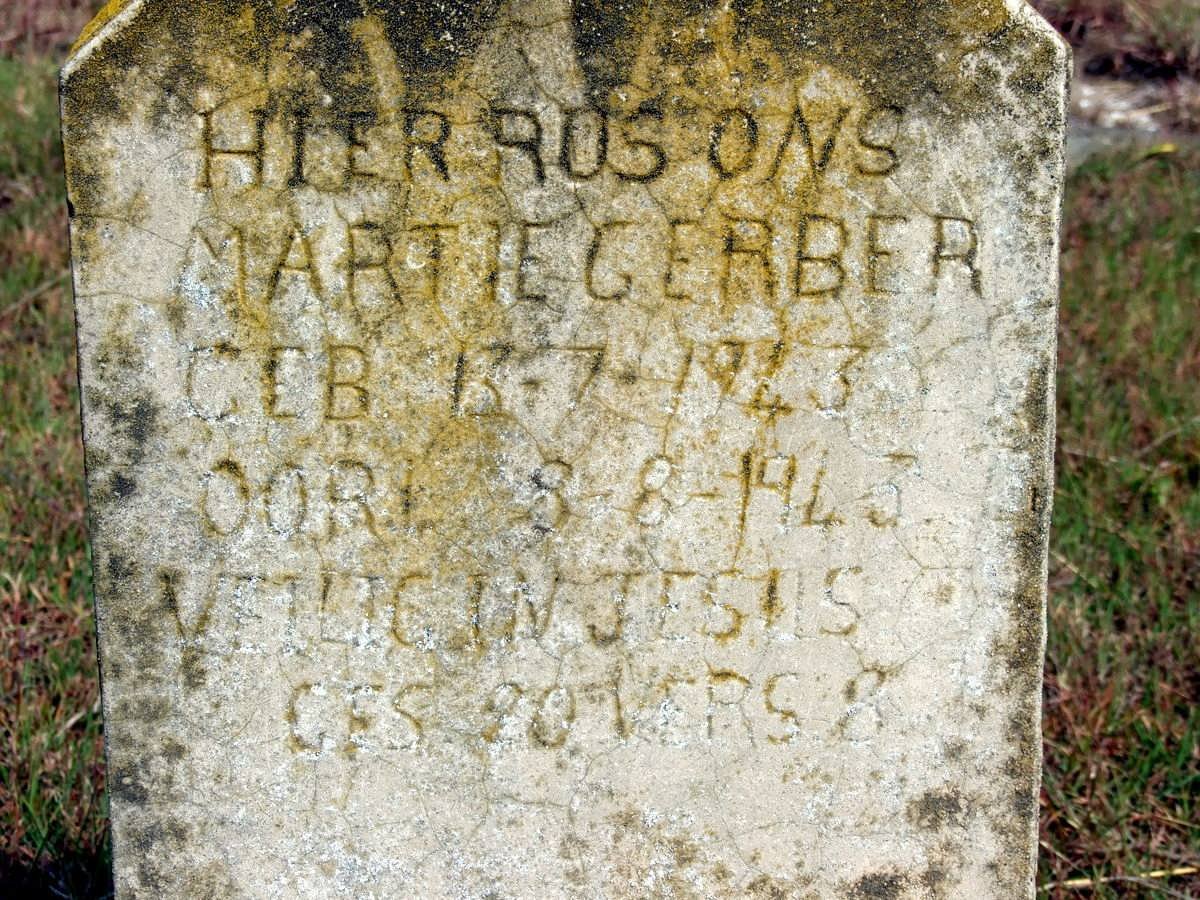 HIER RUS ONS
MARTIE GERBER
GEB 13-7-1943
OORL 8-8-1943
VEILIG IN JESUS
GES 20 VERS 8